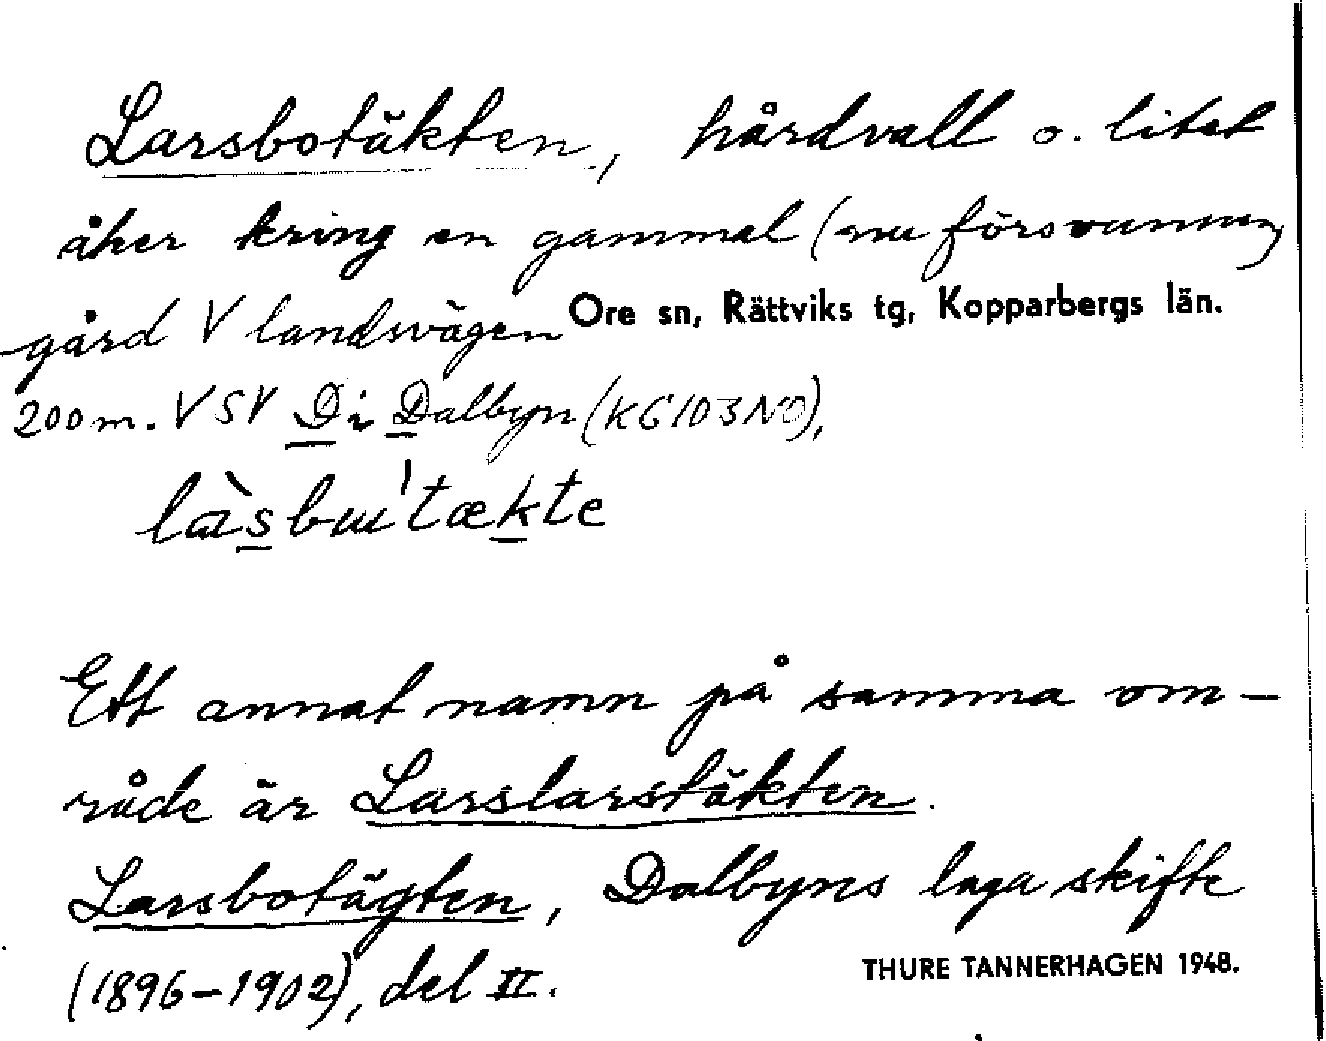 Larsbotäkten, hårdvall o. litet
åker kring en gammal (nu försvunnen)
gård V landsvägen Ore sn, Rättviks tg, Kopparbergs län.
200 m. VSV D i Dalbyn (KG103NO),
Ett annat namn på samma om-
råde är Larslarstäkten.
Larsbotägten, Dalbyns laga skifte
(1896-1902), del II.
THURE TANNERHAGEN 1948.